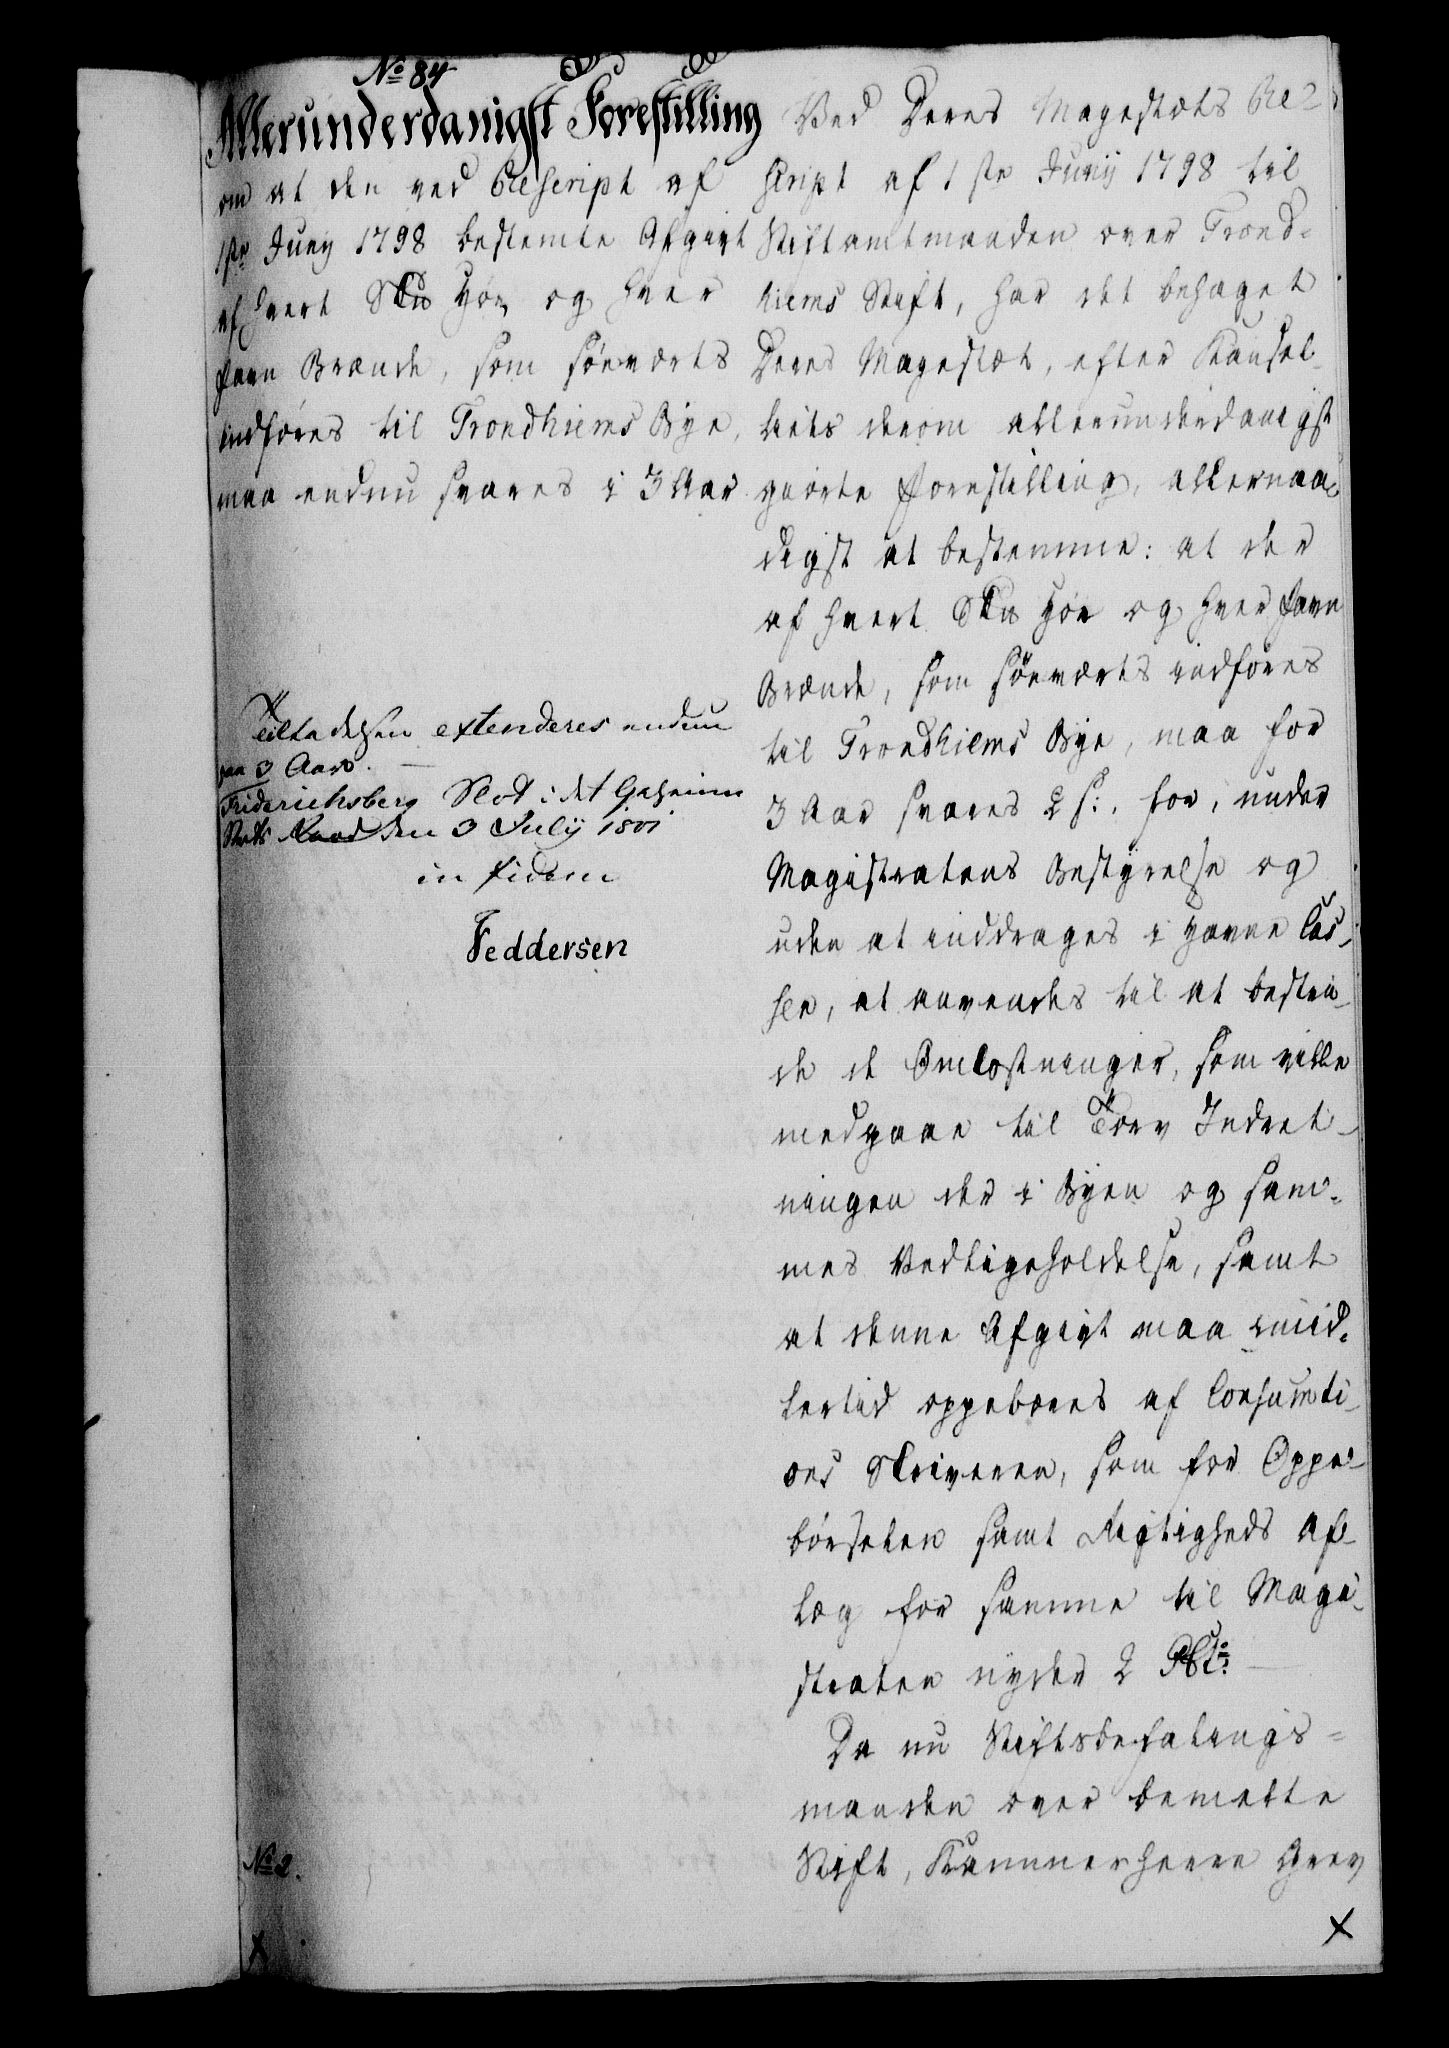 No 84
Allerunderdanigst Forestilling
om at den ved Rescript af
1ste Juny 1798 bestemte Afgivt
af hvert Sk℔ Høe og hver
favn Brænde, som søeværts
indføres til Trondhiems Bye,
maa endnu svares i 3 Aar
Tilladelsen extenderes endnu
paa 3 Aar.
Friderichsberg Slot i det Geheime
Stats Raad den 3 July 1801
in fidem
Feddersen
No 2.
Ved Deres Majestæts Re-
script af 1ste Junij 1798 til
Stiftamtmanden over Trond-
hiems Stift, har det behaget
Deres Majestæt, efter Kancel-
liets derom allerunderdanigst
giorte forestilling, allernaa-
digst at bestemme: at der
af hvert Sk℔ Høe og hver favn
Brænde, som søeværts indføres
til Trondhiems Bye, maa for
3 Aar svares 2 s:, for, under
Magistratens Bestyrelse og
uden at inddrages i Havne Cas-
sen, at anvendes til at bestri-
de de Omkostninger, som ville
medgaae til Torv Indret-
ningen der i Byen og sam-
mes Vedligeholdelse, samt
at denne Afgivt maa imid-
lertid oppebæres af Consumti-
ons Skriveren, som for Oppe-
børselen samt Rigtigheds Af-
læg for samme til Magi-
straten nyder 2 PCto:
Da nu Stiftsbefalings-
manden over bemelte
Stift, Kammerherre Grev